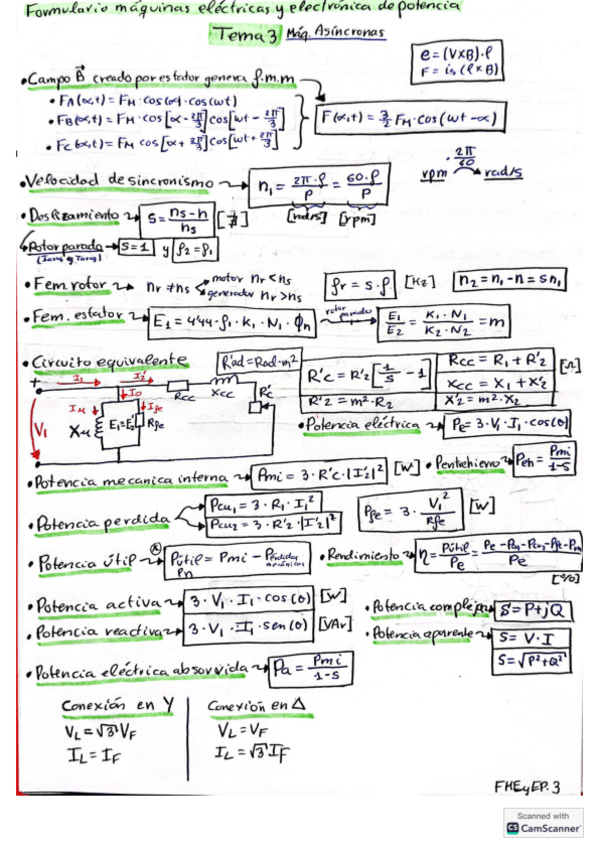 Formulario máquinas eléctricas y electrónica de potencia
Tema 3 Máq. Asíncronas
e = (V×B)·l
F = is (l×B)
• Campo B⃗ creado por estator genera f.m.m
• FA(α,t) = FM · cos(α) · cos(wt)
• FB(α,t) = FM · cos[α - 2π/3] cos[wt - 2π/3]
• FC(α,t) = FM cos[α + 2π/3] cos[wt + 2π/3]
F(α,t) = 3/2 FM · cos(wt - α)
rpm · 2π/60 rad/s
• Velocidad de sincronismo → n1 = 2π·f/P = 60·f/P
[rad/s] [rpm]
• Deslizamiento → S = ns - n/ns
Rotor parado → S=1 y f2 = f1
• Fem. rotor → nr ≠ ns motor nr < ns
generador nr > ns
fr = s·f [Hz] n2 = n1 - n = sn1
• Fem. estator → E1 = 4'44·f1·K1·N1·Φn rotor parado E1/E2 = K1·N1/K2·N2 = m
• Circuito equivalente R'ad = Rad·m²
R'c = R'2 [1/s - 1] Rcc = R1 + R'2 [Ω]
Xcc = X1 + X'2
R'2 = m²·R2 X'2 = m²·X2
+ I1 I2' Rcc Xcc R'c
I0 Iμ Ife
V1 Xμ E1=E2' Rfe
• Potencia eléctrica → Pe = 3·V1·I1·cos(θ)
• Potencia mecanica interna → Pmi = 3·R'c·|I'2|² [W] • P entrehierro → Peh = Pmi/1-s
• Potencia perdida Pcu1 = 3·R1·I1²
Pcu2 = 3·R'2·|I'2|²
Pfe = 3·V1²/Rfe [W]
• Potencia útil → Pútil = Pmi - Pérdidas mecánicas
Pn
• Rendimiento → η = Pútil/Pe = Pe - Pcu1 - Pcu2 - Pfe - Pm/Pe
[%]
• Potencia activa → 3·V1·I1·cos(θ) [W] • Potencia compleja → S = P+jQ
• Potencia reactiva → 3·V1·I1·sen(θ) [VAr] • Potencia aparente → S = V·I
S = √P²+Q²
• Potencia eléctrica absorvida → Pa = Pmi/1-s
Conexión en Y
VL = √3 VF
IL = IF
Conexión en Δ
VL = VF
IL = √3 IF
FMEyEP.3
Scanned with
CS CamScanner